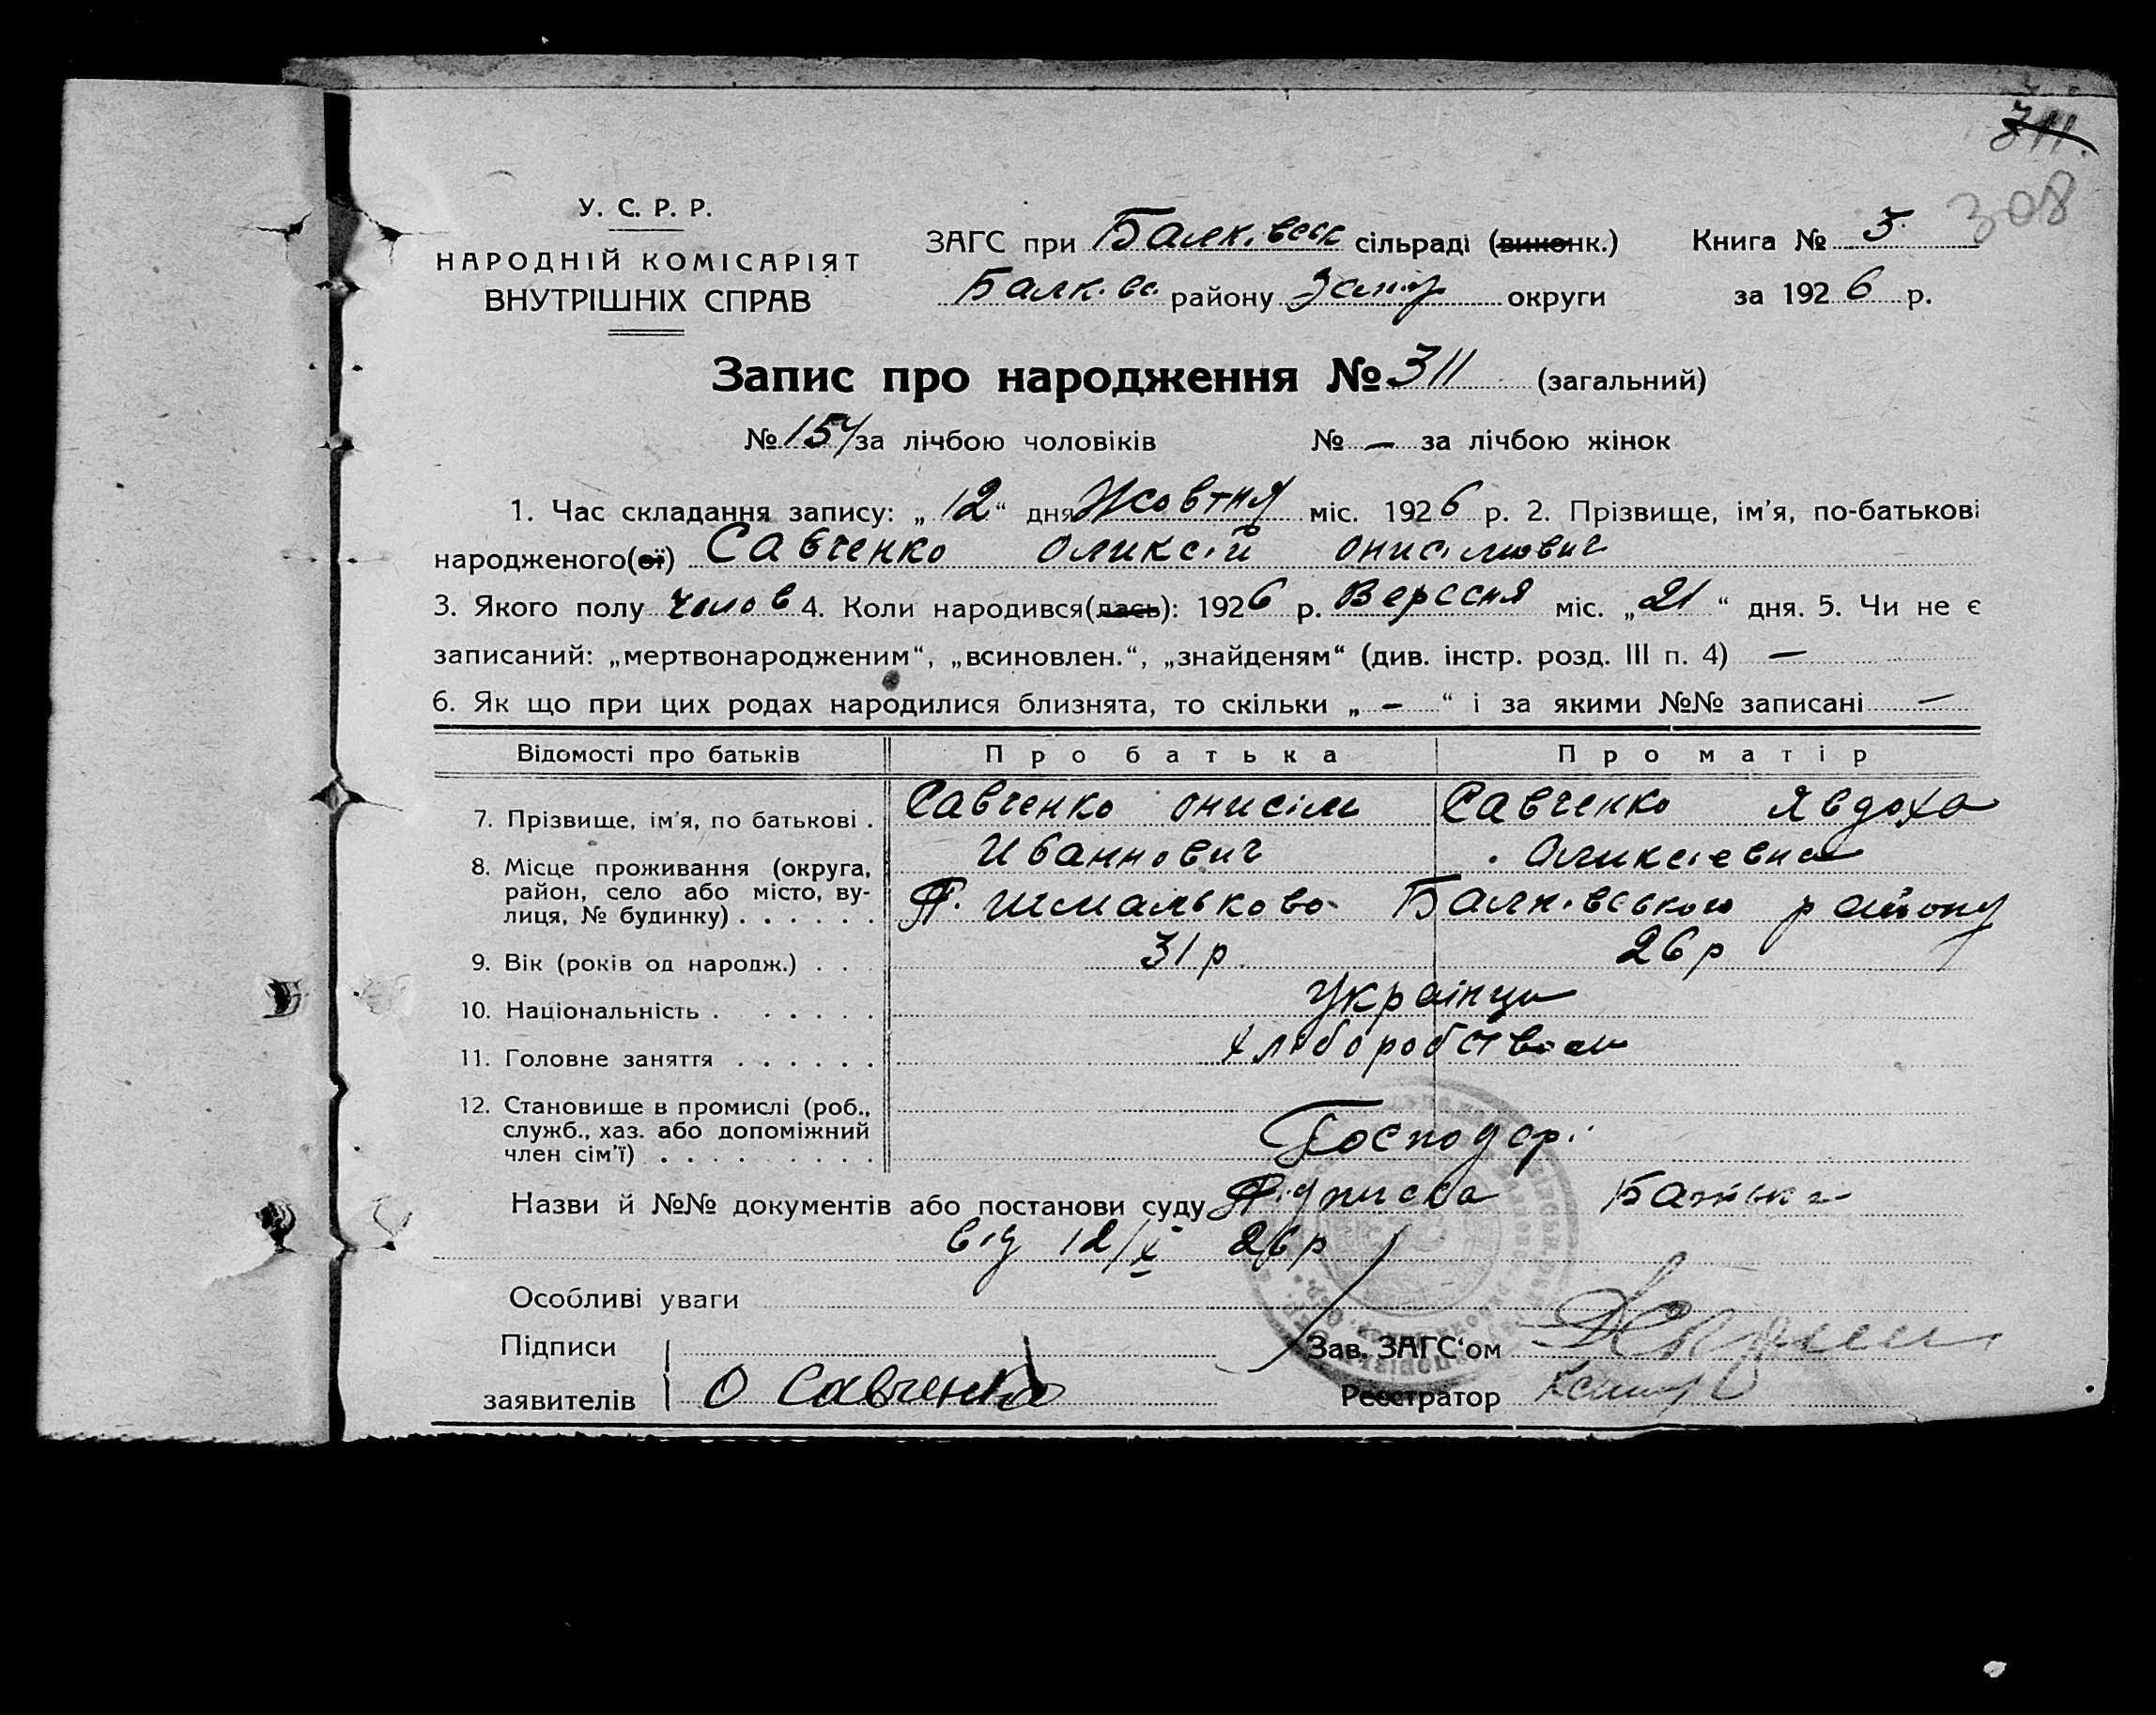 311.
308
У. С. Р. Р.
НАРОДНІЙ КОМІСАРІЯТ
ВНУТРІШНІХ СПРАВ
ЗАГС при Балк.вськ сільраді (виконк.) Книга № 3
Балк. вс. району округи за 1926 р.
Запис про народження № 311 (загальний)
№ 154 за лічбою чоловіків № — за лічбою жінок
1. Час складання запису: „12“ дня Жовтня міс. 1926 р. 2. Прізвище, ім’я, по-батькові
народженого(ої) Савченко Оликсій Онисімович
3. Якого полу чолов 4. Коли народився(лась): 1926 р. Версеня міс. „21“ дня. 5. Чи не є
записаний: „мертвонародженим“, „всиновлен.“, „знайденям“ (див. інстр. розд. III п. 4) —
6. Як що при цих родах народилися близнята, то скільки „—“ і за якими №№ записані —
Відомості про батьків Про батька Про матір
7. Прізвище, ім’я, по батькові . Савченко Онисім Савченко Явдоха
Иванновић Оликсіевна
8. Місце проживання (округа,
район, село або місто, ву-
лиця, № будинку) . . . . . . П. Шмальково Балківського району
9. Вік (років од народж.) . . 31 р. 26 р
10. Національність . . . . . . Українци
11. Головне заняття . . . . . . хліборобством
12. Становище в промислі (роб.,
служб., хаз. або допоміжний
член сім’ї) . . . . . . . . . Господарі
Назви й №№ документів або постанови суду Підписка Батька
від 12/X 26 р
Особливі уваги
Підписи Зав. ЗАГС‘ом
заявителів О Савченко Реєстратор